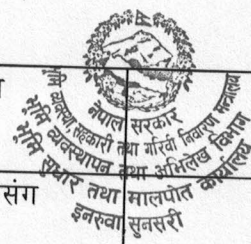 नेपाल सरकार
भूमि व्यवस्था, सहकारी तथा गरिवी निवारण मन्त्रालय
भूमि व्यवस्थापन तथा अभिलेख विभाग
भूमि सुधार तथा मालपोत कार्यालय
इनरुवा, सुनसरी
संग